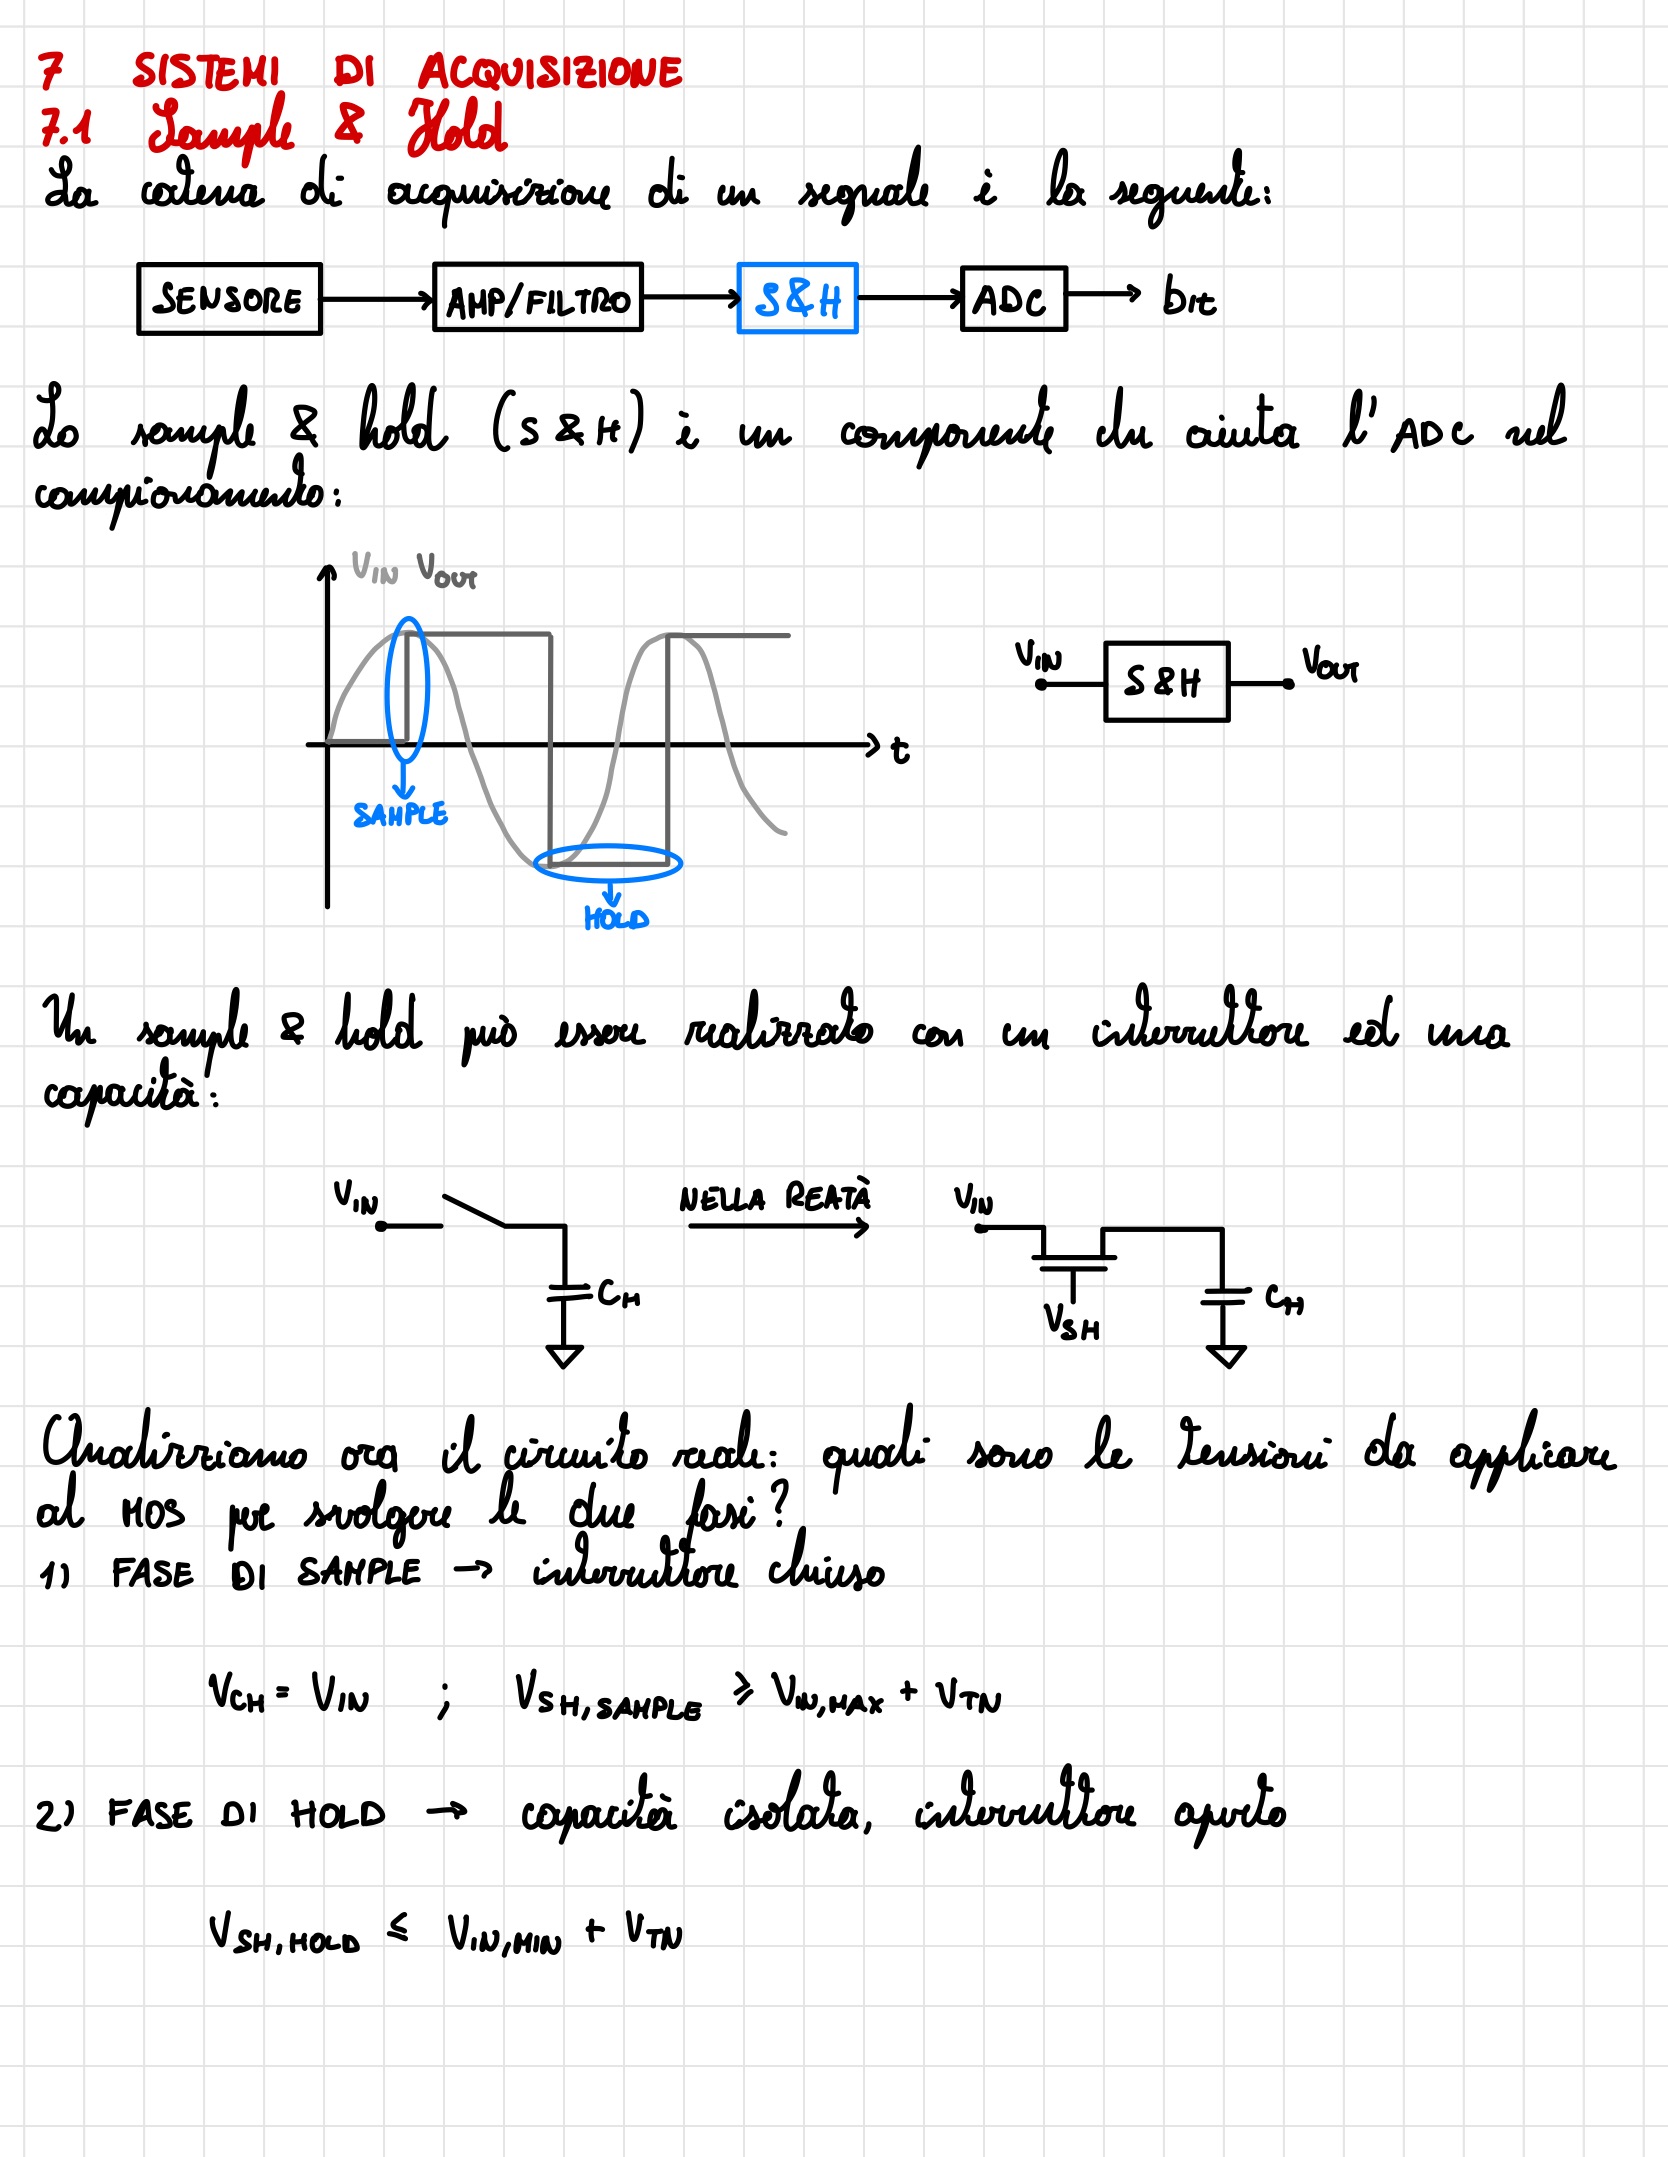 7 SISTEMI DI ACQUISIZIONE
7.1 Sample & Hold
La catena di acquisizione di un segnale è la seguente:
SENSORE AMP/FILTRO S&H ADC bit
Lo sample & hold (S&H) è un componente che aiuta l'ADC nel
campionamento:
VIN VOUT
VIN S&H VOUT
t
SAMPLE
HOLD
Un sample & hold può essere realizzato con un interruttore ed una
capacità:
VIN NELLA REATÀ VIN
CH CH
VSH
Analizziamo ora il circuito reale: quali sono le tensioni da applicare
al MOS per svolgere le due fasi?
1) FASE DI SAMPLE → interruttore chiuso
VCH = VIN ; VSH,SAMPLE ≥ VIN,MAX + VTN
2) FASE DI HOLD → capacità isolata, interruttore aperto
VSH,HOLD ≤ VIN,MIN + VTN